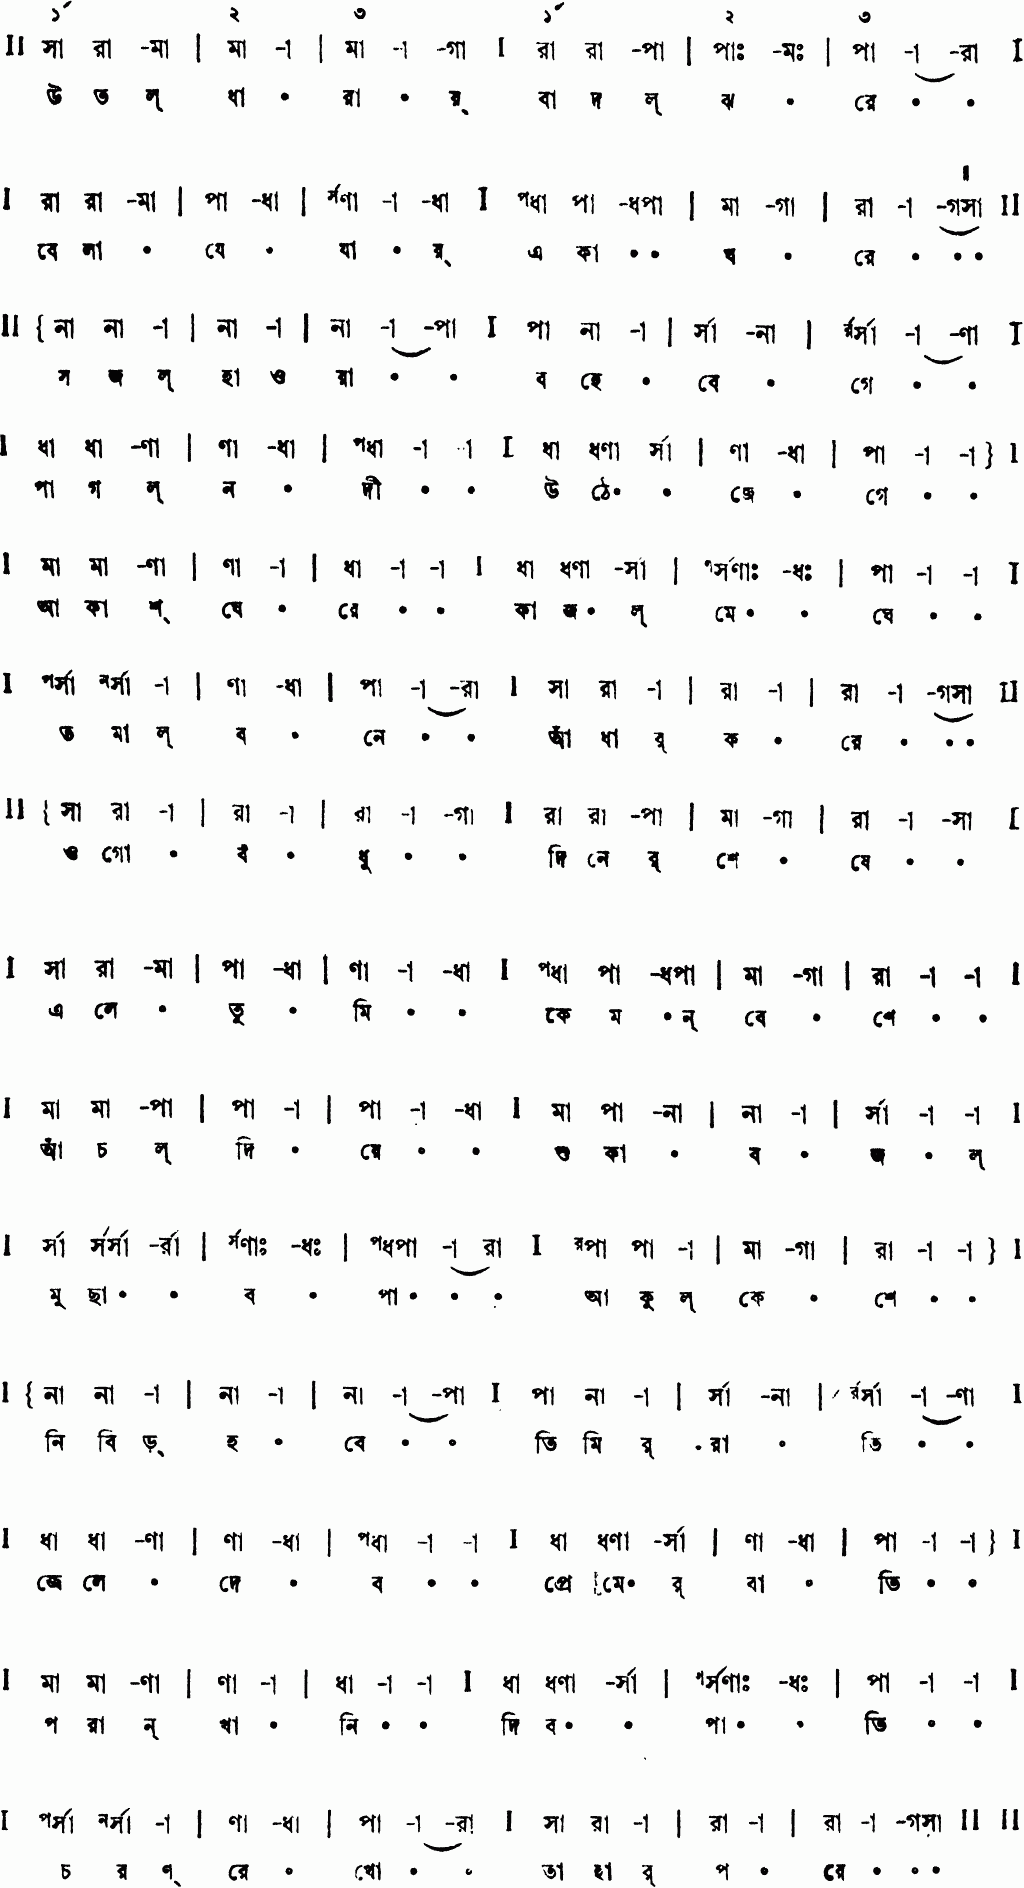 ১´ ২ ৩ ১´ ২ ৩
II সা রা -মা | মা -া | মা -া -গা I রা রা -পা | পাঃ -মঃ | পা -া -রা I
উ ত ল্ ধা • রা • য়্ বা দ ল্ ঝ • রে • •
I রা রা -মা | পা -ধা | র্সণা -া -ধা I পধা পা -ধপা | মা -গা | রা -া -গসা II
বে লা • যে • যা • য়্ এ কা • • ঘ • রে • • •
II { না না -া | না -া | না -া -পা I পা না -া | র্সা -না | র্রর্সা -া -ণা I
স জ ল্ হা ও য়া • • ব হে • বে • গে • •
I ধা ধা -ণা | ণা -ধা | পধা -া -া I ধা ধণা র্সা | ণা -ধা | পা -া -া } I
পা গ ল্ ন • দী • • উ ঠে• • জে • গে • •
I মা মা -ণা | ণা -া | ধা -া -া I ধা ধণা -র্সা | ণর্সণাঃ -ধঃ | পা -া -া I
আ কা শ্ ঘে • রে • • কা জ• ল্ মে• • ঘে • •
I পর্সা নর্সা -া | ণা -ধা | পা -া -রা I সা রা -া | রা -া | রা -া -গসা II
ত মা ল্ ব • নে • • আঁ ধা র্ ক • রে • • •
II { সা রা -া | রা -া | রা -া -গা I রা রা -পা | মা -গা | রা -া -সা I
ও গো • বঁ • ধু • • দি নে র্ শে • ষে • •
I সা রা -মা | পা -ধা | ণা -া -ধা I পধা পা -ধপা | মা -গা | রা -া -া I
এ লে • তু • মি • • কে ম • ন্ বে • শে • •
I মা মা -পা | পা -া | পা -া -ধা I মা পা -না | না -া | র্সা -া -া I
আঁ চ ল্ দি • য়ে • • শু কা • ব • জ • ল্
I র্সা র্সর্সা -র্রা | র্সণাঃ -ধঃ | পধপা -া রা I রপা পা -া | মা -গা | রা -া -া } I
মু ছা• • ব • পা• • • আ কু ল্ কে • শে • •
I { না না -া | না -া | না -া -পা I পা না -া | র্সা -না | র্রর্সা -া -ণা I
নি বি ড়্ হ • বে • • তি মি র্ রা • তি • •
I ধা ধা -ণা | ণা -ধা | পধা -া -া I ধা ধণা -র্সা | ণা -ধা | পা -া -া } I
জে লে • দে • ব • • প্রে মে• র্ বা • তি • •
I মা মা -ণা | ণা -া | ধা -া -া I ধা ধণা -র্সা | ণর্সণাঃ -ধঃ | পা -া -া I
প রা ন্ খা • নি • • দি ব• • পা• • তি • •
I পর্সা নর্সা -া | ণা -ধা | পা -া -রা I সা রা -া | রা -া | রা -া -গসা II II
চ র ণ্ রে • খো • • তা হা র্ প • রে • • •